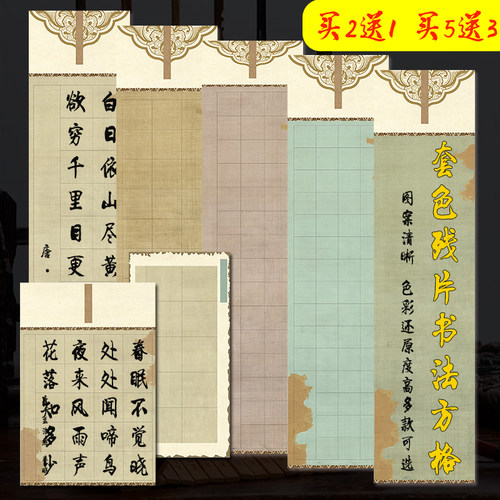 买2送1 买5送3
套色残片书法方格
图案清晰 色彩还原度高多款可选
白日依山尽黄
欲穷千里目更
唐
春眠不觉晓
处处闻啼鸟
夜来风雨声
花落知多少